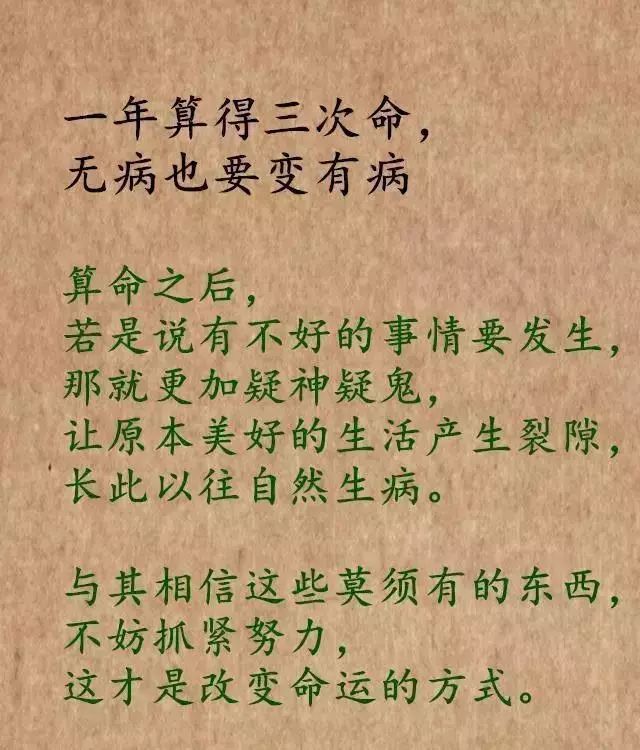 一年算得三次命，
无病也要变有病
算命之后，
若是说有不好的事情要发生，
那就更加疑神疑鬼，
让原本美好的生活产生裂隙，
长此以往自然生病。
与其相信这些莫须有的东西，
不妨抓紧努力，
这才是改变命运的方式。